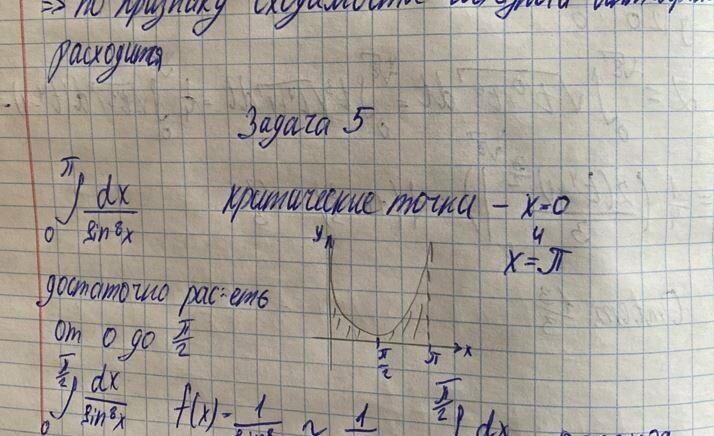 => по признаку сходимости
расходится
Задача 5
π
∫ dx/sin⁸x критические точки – x=0
0
и
x=π
y
достаточно рас-еть
от 0 до π/2
π/2 π x
π/2
∫ dx/sin⁸x f(x)= 1/sin⁸ ~ 1 π/2 ∫ dx
0